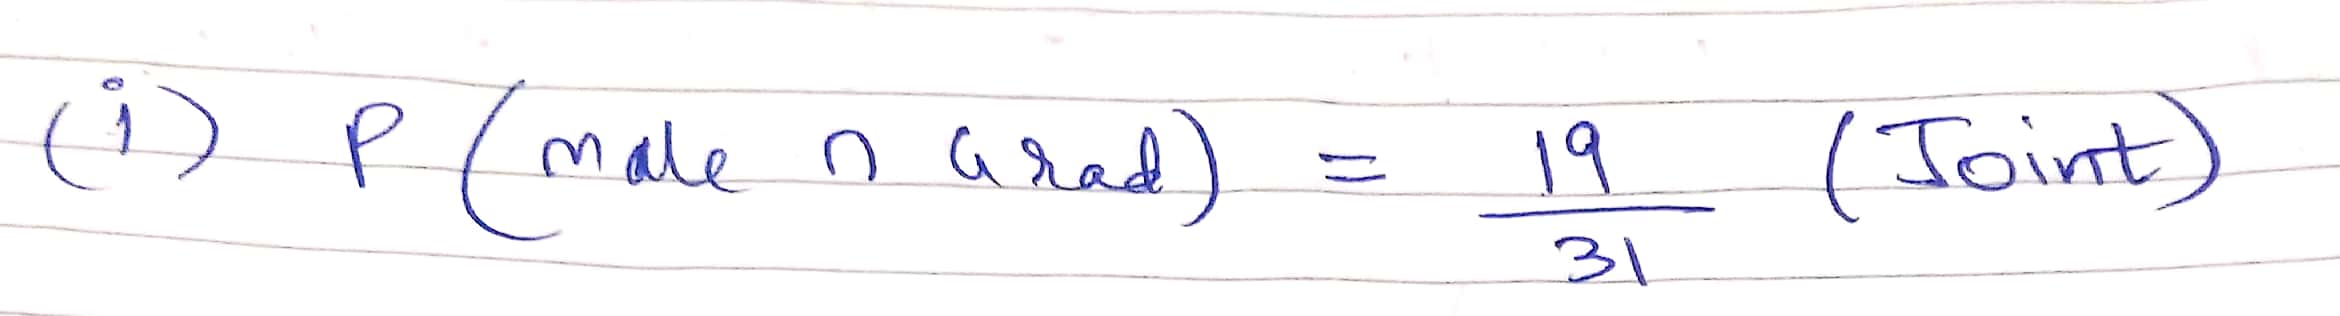 (i) P (male ∩ Grad) = 19/31 (Joint)